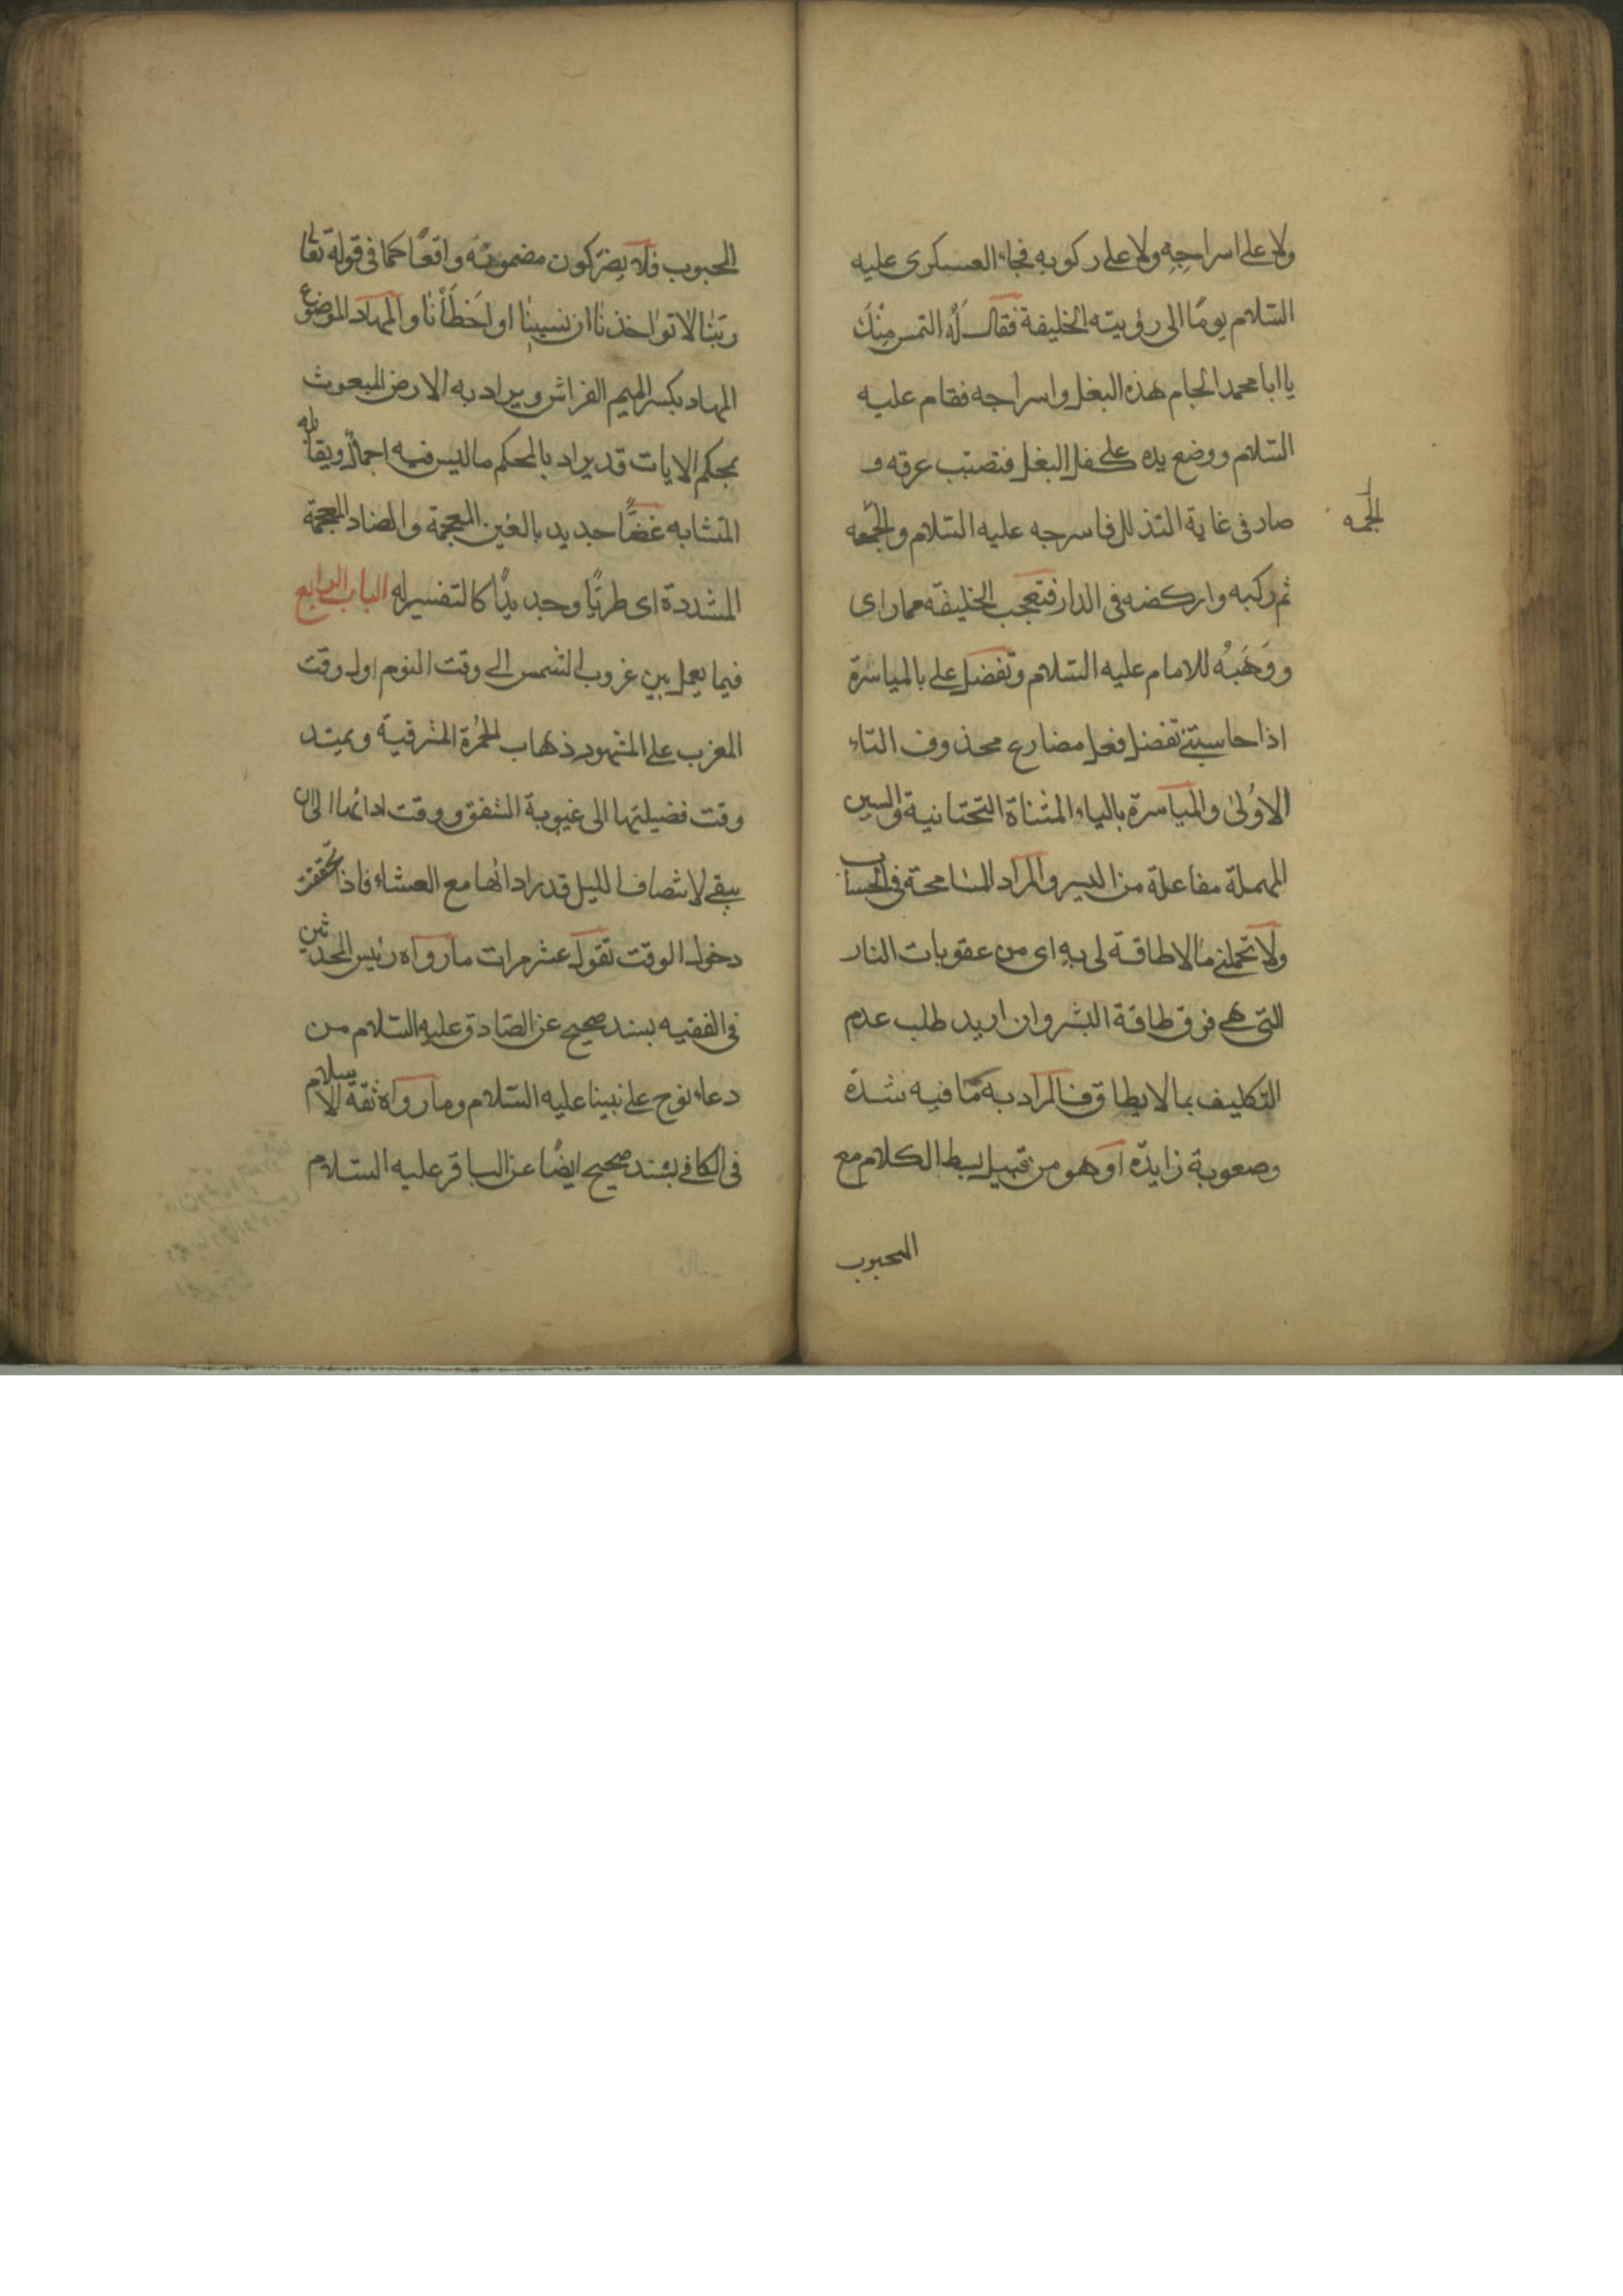 ولا على اسراجِهِ ولا على ركوبه فجاء العسكرى عليه
السّلام يومًا الى رؤيته الخليفة فقال لَهُ التمس مِنْكَ
يا ابا محمد الجام هذه البغل واسراجه فقام عليه
السّلام ووضع يده على كفل البغل فتصبّب عرقه و
صار فى غاية التذلل فاسرجه عليه السّلام والجمه
الجمَه
ثم ركبه واركضه فى الدار فتعجب الخليفة مما راى
ووَهَبَهُ للامام عليه السّلام وتفضل على بالمياسرة
اذا حاسبتنى تفضل فعل مضارع محذوف التاء
الاوُلىٰ والمياسرة بالياء المثناة التحتانية والسين
المهملة مفاعلة من اليسر والمراد المسٰامحة فى الحساب
ولا تحملنى مٰا لا طاقة لى بهِ اى من عقوبات النار
التى هى فوق طاقة البشر وان اريد طلب عدم
التكليف بما لا يطاق فالمراد به مّا فيه شدّة
وصعوبة زايدّة او هو من قبيل بسط الكلام مع
المحبوب
المحبوب فلا يضرّ كون مضمونه واقعًا كما فى قوله تعا
ربّنٰا لا تواخذنٰا ان نسينٰا او اَخطَأْنٰا والمهاد الموضوع
المهاد بكسر الميم الفراش ويراد به الارض المبعوث
بمحكم الايات قد يراد بالمحكم ما ليس فيه اجمال ويقابله
المتشابه غضًّا جديد بالغين المعجمة والضاد المعجمة
المشددة اى طريًّا وجديدًا كالتفسير له الباب الرابع
فيما يعمل بين غروب الشمس الى وقت النوم اول وقت
المغرب على المشهور ذهاب الحُمْرة المشرقية ويمتد
وقت فضيلتها الى غيبوبة الشفق ووقت ادائها الى ان
يبقى لانتصاف الليل قدر ادائها مع العشاء فاذا تحققت
دخول الوقت تقول عشر مرات ما رواه رئيس المحدثين
فى الفقيه بسند صحيح عن الصّادق عليه السّلام من
دعاء نوح على نبينا عليه السّلام وما رواه ثقة الاسلام
فى الكافى بسند صحيح ايضًا عن الباقر عليه السّلام